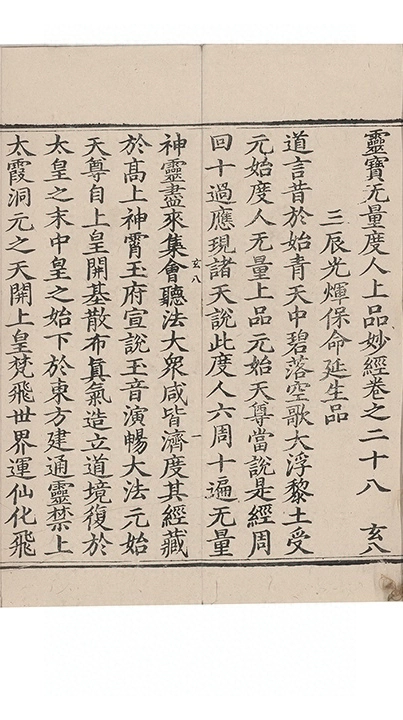 靈寶无量度人上品妙經卷之二十八 玄八
三辰光煇保命延生品
道言昔於始青天中碧落空歌大浮黎土受
元始度人无量上品元始天尊當說是經周
回十過應現諸天說此度人六周十遍无量
玄八 一
神靈盡來集會聽法大衆咸皆濟度其經藏
於髙上神霄玉府宣說玉音演暢大法元始
天尊自上皇開基散布眞氣造立道境復於
太皇之末中皇之始下於東方建通靈禁上
太霞洞元之天開上皇梵飛世界運仙化飛